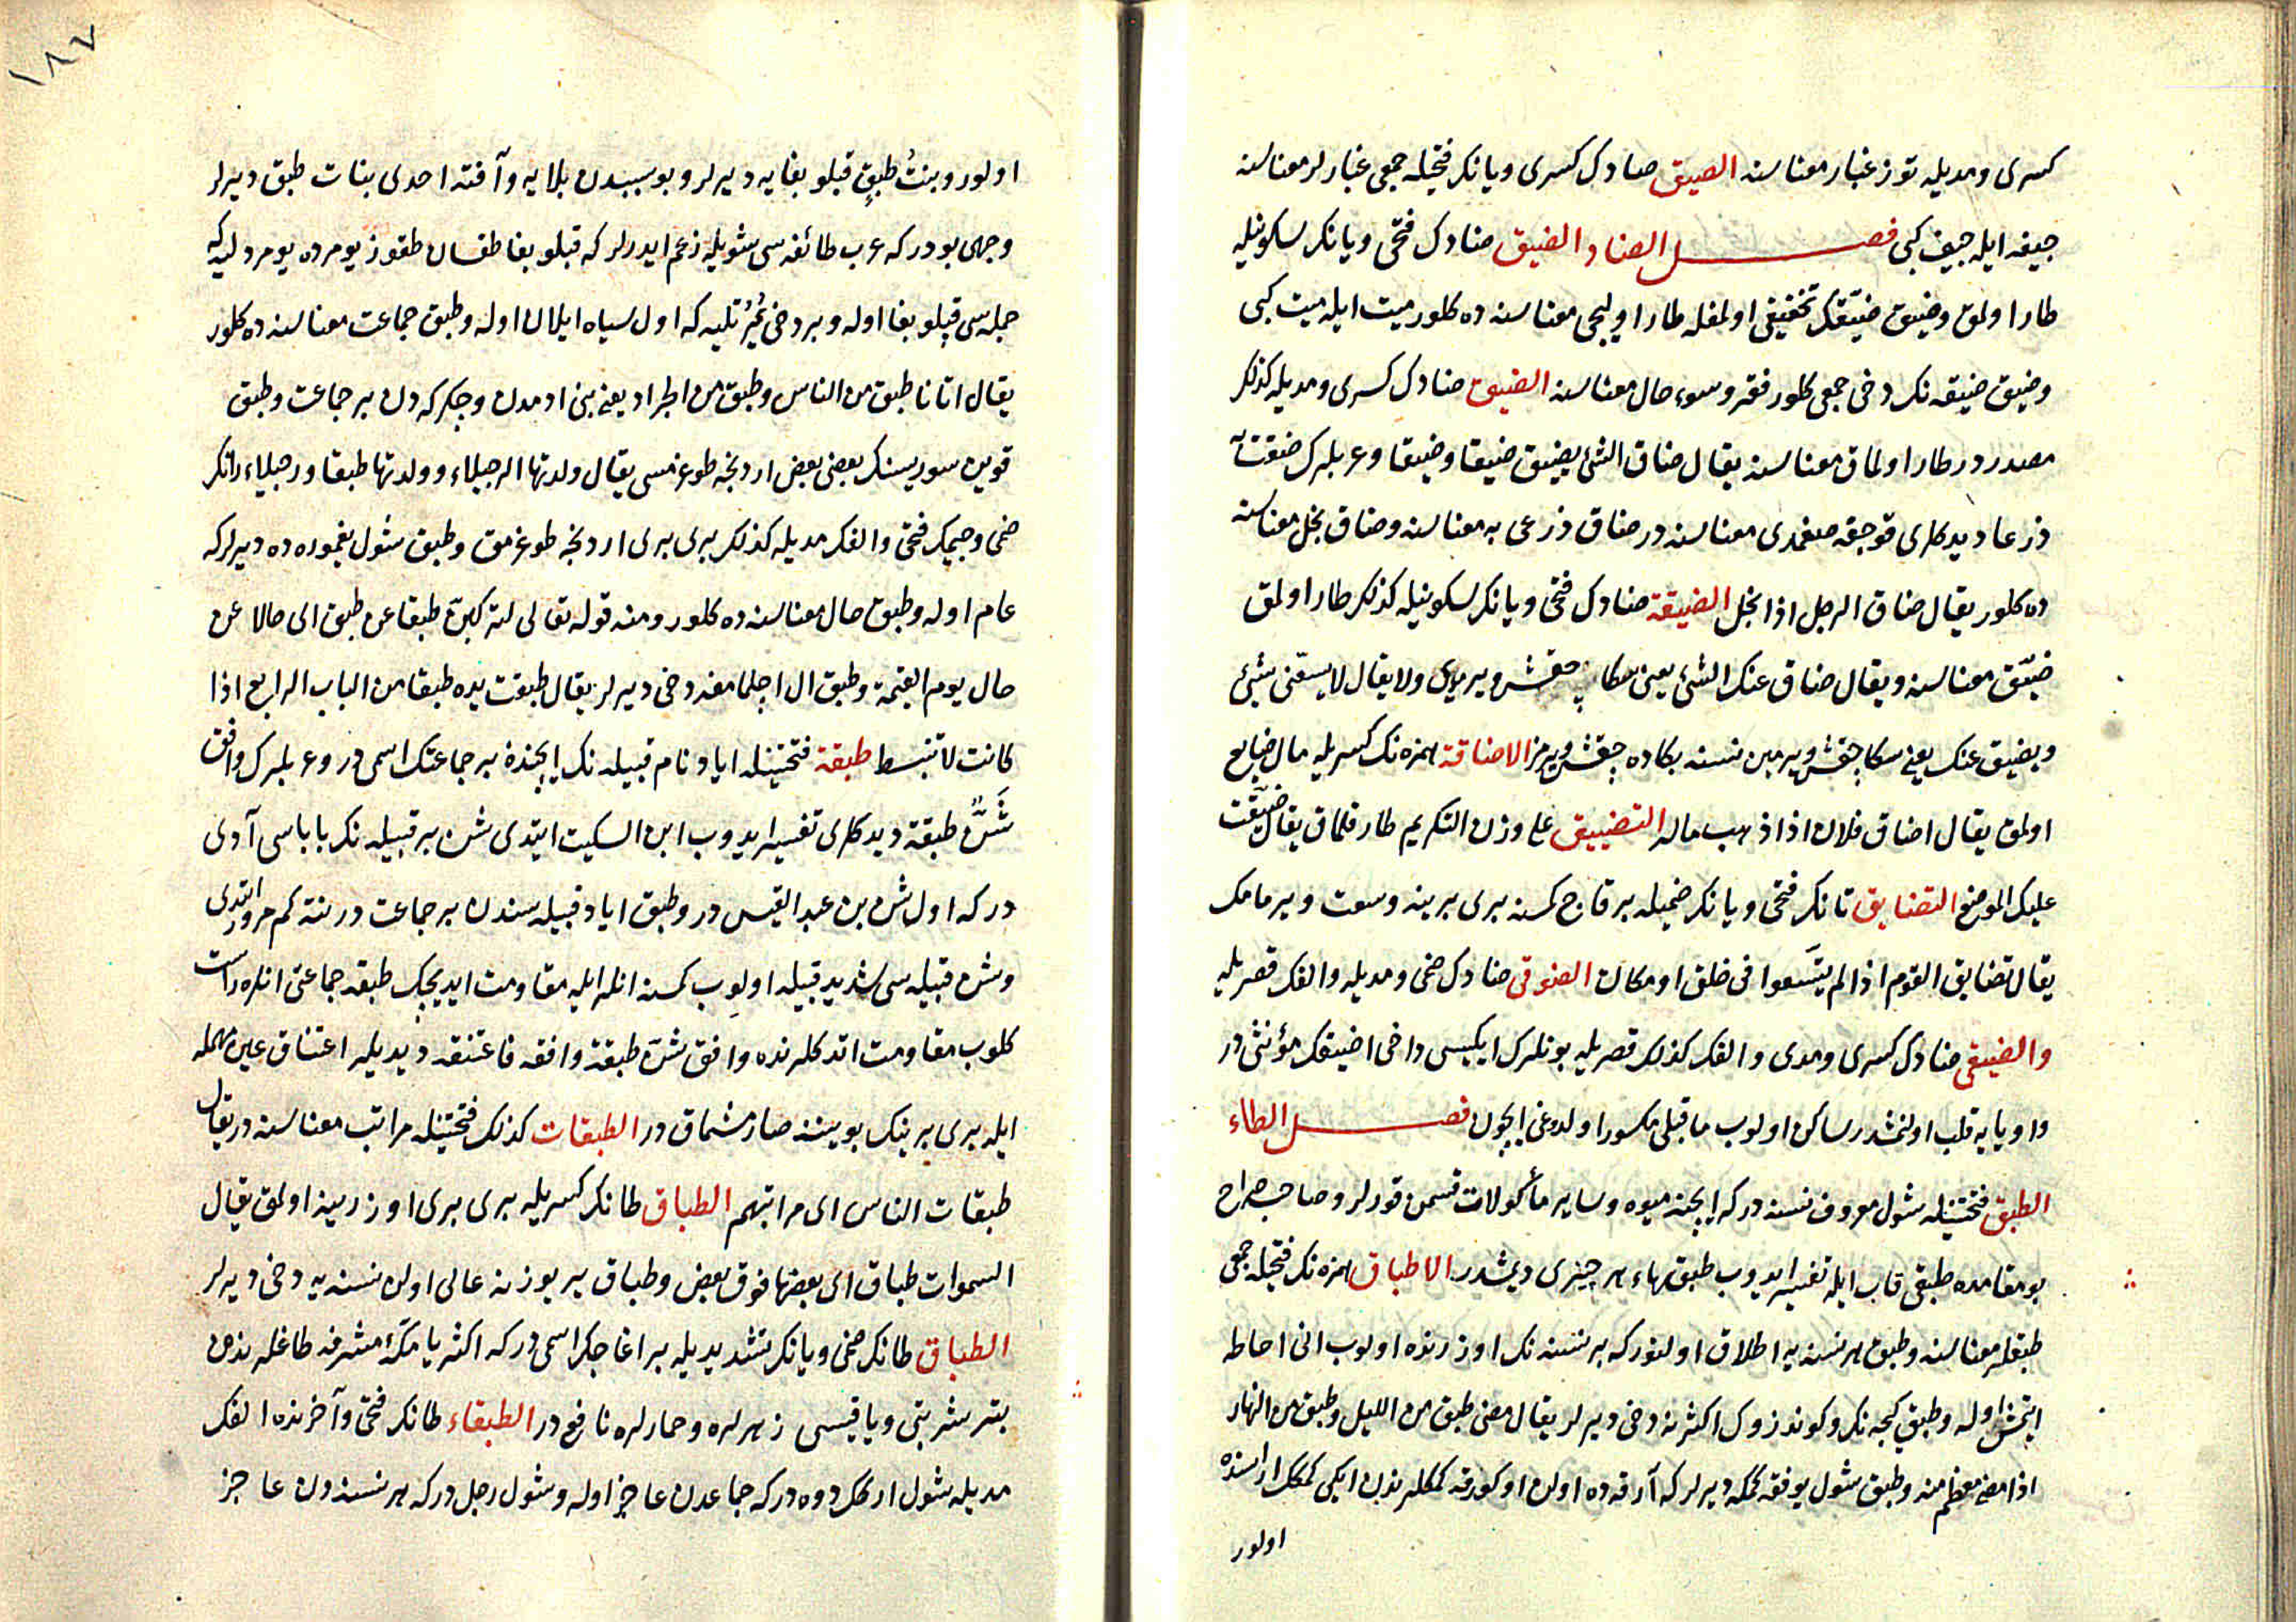 كسرى ومديله توز غبار معناسنه الصيق صادك كسرى ويانك فتحيله جمعى غبارلر معناسنه
جيفه ايله جيف كبى فصل الضاد الضيق ضادك فتحى ويانك سكونيله
طار اولمق وضيق ضيّقك تخفيفى اولمغله طار اوليجى معناسنه ده كلور ميت ايله ميت كبى
وضيق ضيقه نك دخى جمعى كلور فقر وسوء حال معناسنه الضيق ضادك كسرى ومديله كذلك
مصدردر طار اولماق معناسنه يقال ضاق الشئ يضيق ضيقا وضيقا وعربلرك ضقت به
ذرعا ديدكلرى قوجقه صغمدى معناسنه در ضاق ذرعى به معناسنه وضاق بخل معناسنه
ده كلور يقال ضاق الرجل اذا بخل الضيقة ضادك فتحى ويانك سكونيله كذلك طار اولمق
ضيّق معناسنه ويقال ضاق عنك الشئ يعنى سكا ويرميدى ولا يقال لا يسعنى شئ
ويضيق عنك يعنى سكا ويرمين نسنه بكاده ويرمز الاضاقة همزه نك كسريله مال ضايع
اولمق يقال اضاق فلان اذا ذهب ماله التضييق على وزن التكريم طار قلماق يقال ضيّقت
عليك الموضع التضايق تانك فتحى ويانك ضميله بر قاچ كمسنه برى برينه وسعت ويرمامك
يقال تضايق القوم اذا لم يتسعوا فى خلق او مكان الضوقى ضادك ضمى ومديله والفك قصريله
والضيقى ضادك كسرى ومدى والفك كذلك قصريله بونلرك ايكيسى داخى اضيقك مؤنثى در
واو يايه قلب اولنمشدر ساكن اولوب ما قبلى مكسور اولدوغى ايچون فصل الطاء
الطبق فتحتينله شول معروف نسنه در كه ايچنه ميوه وساير مأكولات قسمن قورلر وصاحب صراح
بو مقامده طبقى قاب ايله تفسير ايدوب طبق بهاء هر چيزى ديمشدر الاطباق همزه نك فتحيله جمعى
طبقلر معناسنه وطبق هر نسنه يه اطلاق اولنور كه بر نسنه نك اوزرنده اولوب انى احاطه
ايتمش اوله وطبق كيجه نك وكوندزوك اكثرنه دخى ديرلر يقال مضى طبق من الليل وطبق من النهار
اذا مضى معظم منه وطبق شول يوفقه كمكه ديرلر كه آرقه ده اولان اوكورقه كمكلرندن ايكى كمكك اراسنده
اولور
١٨٦
اولور وبنتُ طبقٍ قبلوبغايه ديرلر وبو سببدن بلايه وآفته احدى بنات طبق ديرلر
وجهى بودر كه عرب طائفه سى شويله زعم ايدرلر كه قبلوبغا طقسان طقوز يومرده يومردلر كه
جمله سى قبلوبغا اوله وبر دخى كه اول سياه ايلان اوله وطبق جماعت معناسنه ده كلور
يقال اتانا طبق من الناس وطبق من الجراد يعنى بنى ادمدن وچكركه دن بر جماعت وطبق
قوين سوريسنك بعضى بعض اردنجه طوغمسى يقال ولدتها الرجيلاء وولدتها طبقا ورجيلاء رانك
ضمى وجيمك فتحى والفك مديله كذلك برى برى اردنجه طوغرمق وطبق شول يغموره ده ديرلر كه
عام اوله وطبق حال معناسنه ده كلور ومنه قوله تعالى لتركبن طبقا عن طبق اى حالا عن
حال يوم القيمة وطبق ال اچلمامغه دخى ديرلر يقال طبقت يده طبقا من الباب الرابع اذا
كانت لا تنبسط طبقة فتحتينله اياد نام قبيله نك ايچنده بر جماعتك اسمى در وعربلرك وافق
شَنٌّ طبقة ديدكلرى تفسير ايدوب ابن السكيت ايتدى شن بر قبيله نك باباسى آدى
در كه اول شن بن عبد القيس در وطبق اياد قبيله سندن بر جماعت در نته كم مرور ايتدى
وشن قبيله سى شديد قبيله اولوب كمسنه انلر ايله مقاومت ايديجك طبقه جماعتى انلره راست
كلوب مقاومت اتدكلرنده وافق شنّ طبقة وافقه فاعتنقه ديديلر اعتناق عين مهمله
ايله برى برينك بوينىنه صارمشماق در الطبقات كذلك فتحتينله مراتب معناسنه در يقال
طبقات الناس اى مراتبهم الطباق طانك كسريله برى برى اوزرينه اولمق يقال
السموات طباق اى بعضها فوق بعض وطباق ير يوزنه عالى اولن نسنه يه دخى ديرلر
الطباق طانك ضمى وبانك تشديديله بر اغاجك اسمى در كه اكثريا مكهٔ مشرفه طاغلرنده
بتر شربتى وياقيسى زهرلره وحمارلره نافع در الطبقاء طانك فتحى وآخرنده الفك
مديله شول اركك دوه در كه جماعدن عاجز اوله وشول رجل در كه هر نسنه دن عاجز